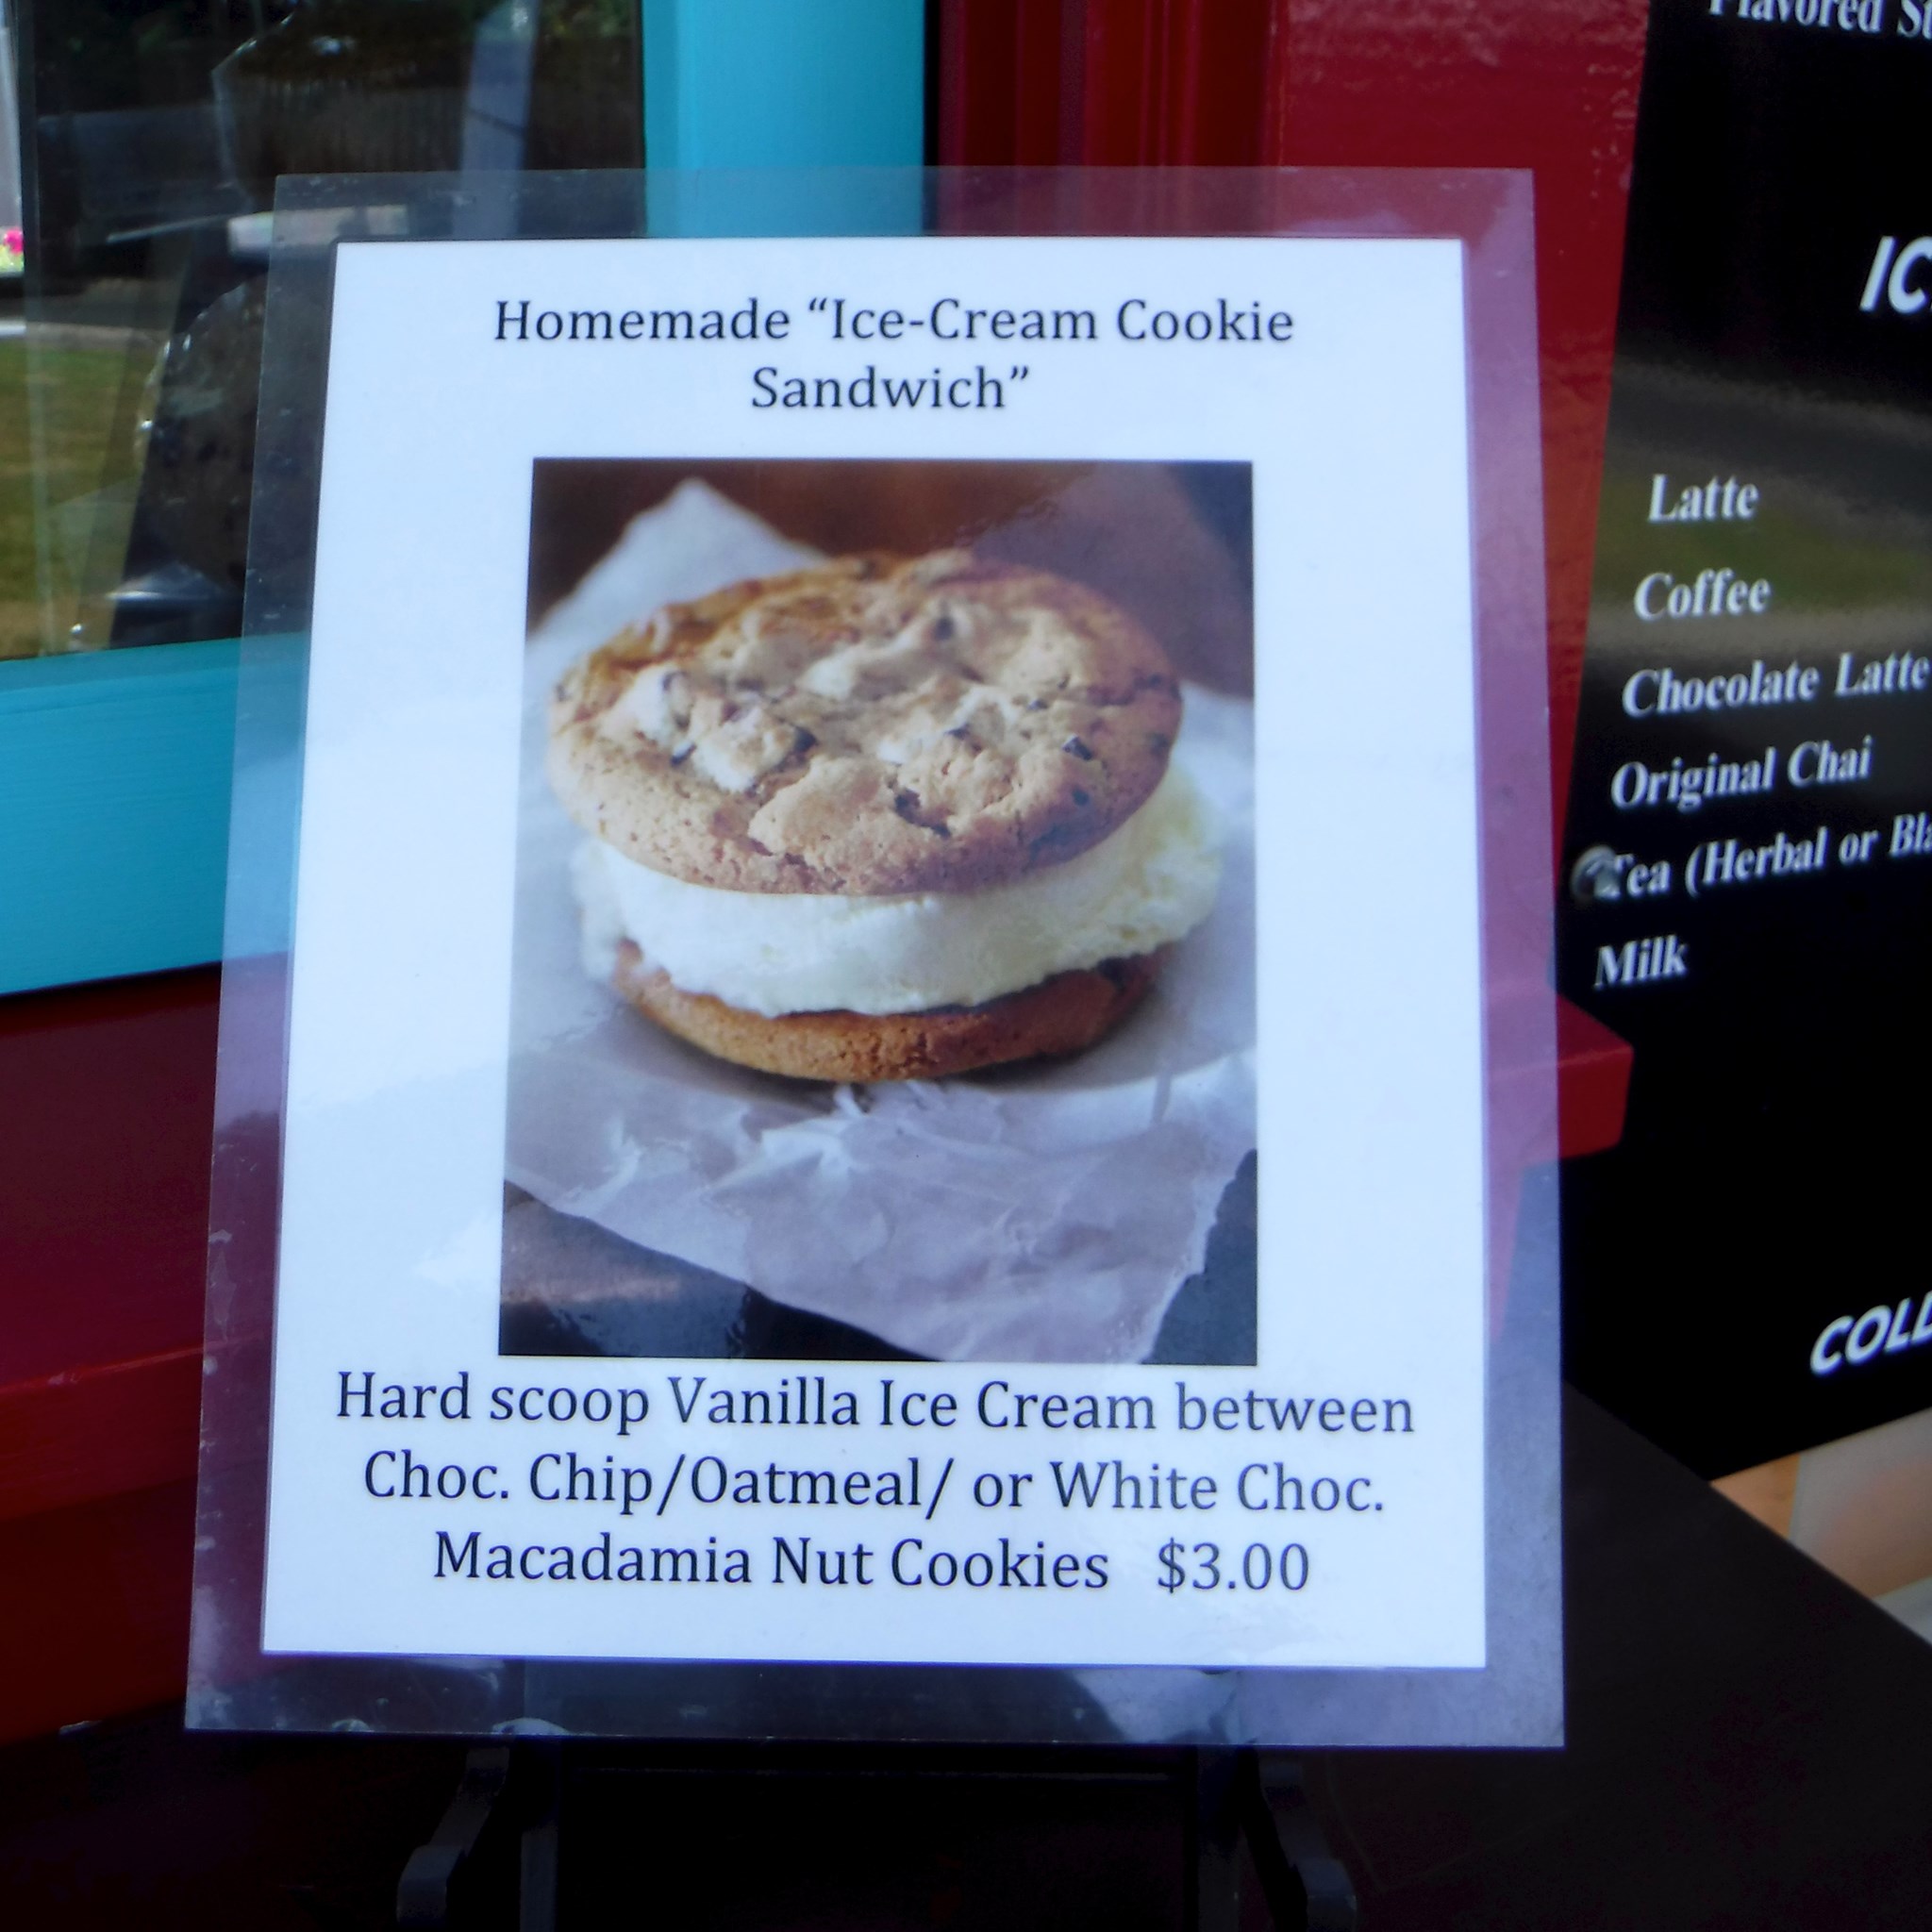 Homemade “Ice-Cream Cookie
Sandwich”
Hard scoop Vanilla Ice Cream between
Choc. Chip/Oatmeal/ or White Choc.
Macadamia Nut Cookies $3.00
Flavored
Latte
Coffee
Chocolate Latte
Original Chai
Tea (Herbal or
Milk
COLD